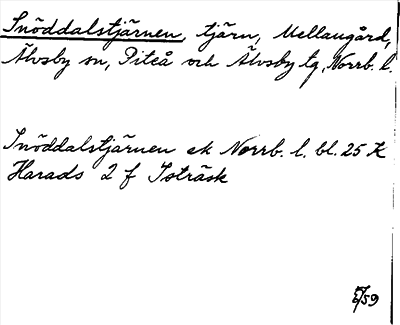 Snöddalstjärnen, tjärn, Mellangård,
Älvsby sn, Piteå och Älvsby tg, Norrb. l.
Snöddalstjärnen ek Norrb. l. bl. 25 K
Harads 2 f Isträsk
/59